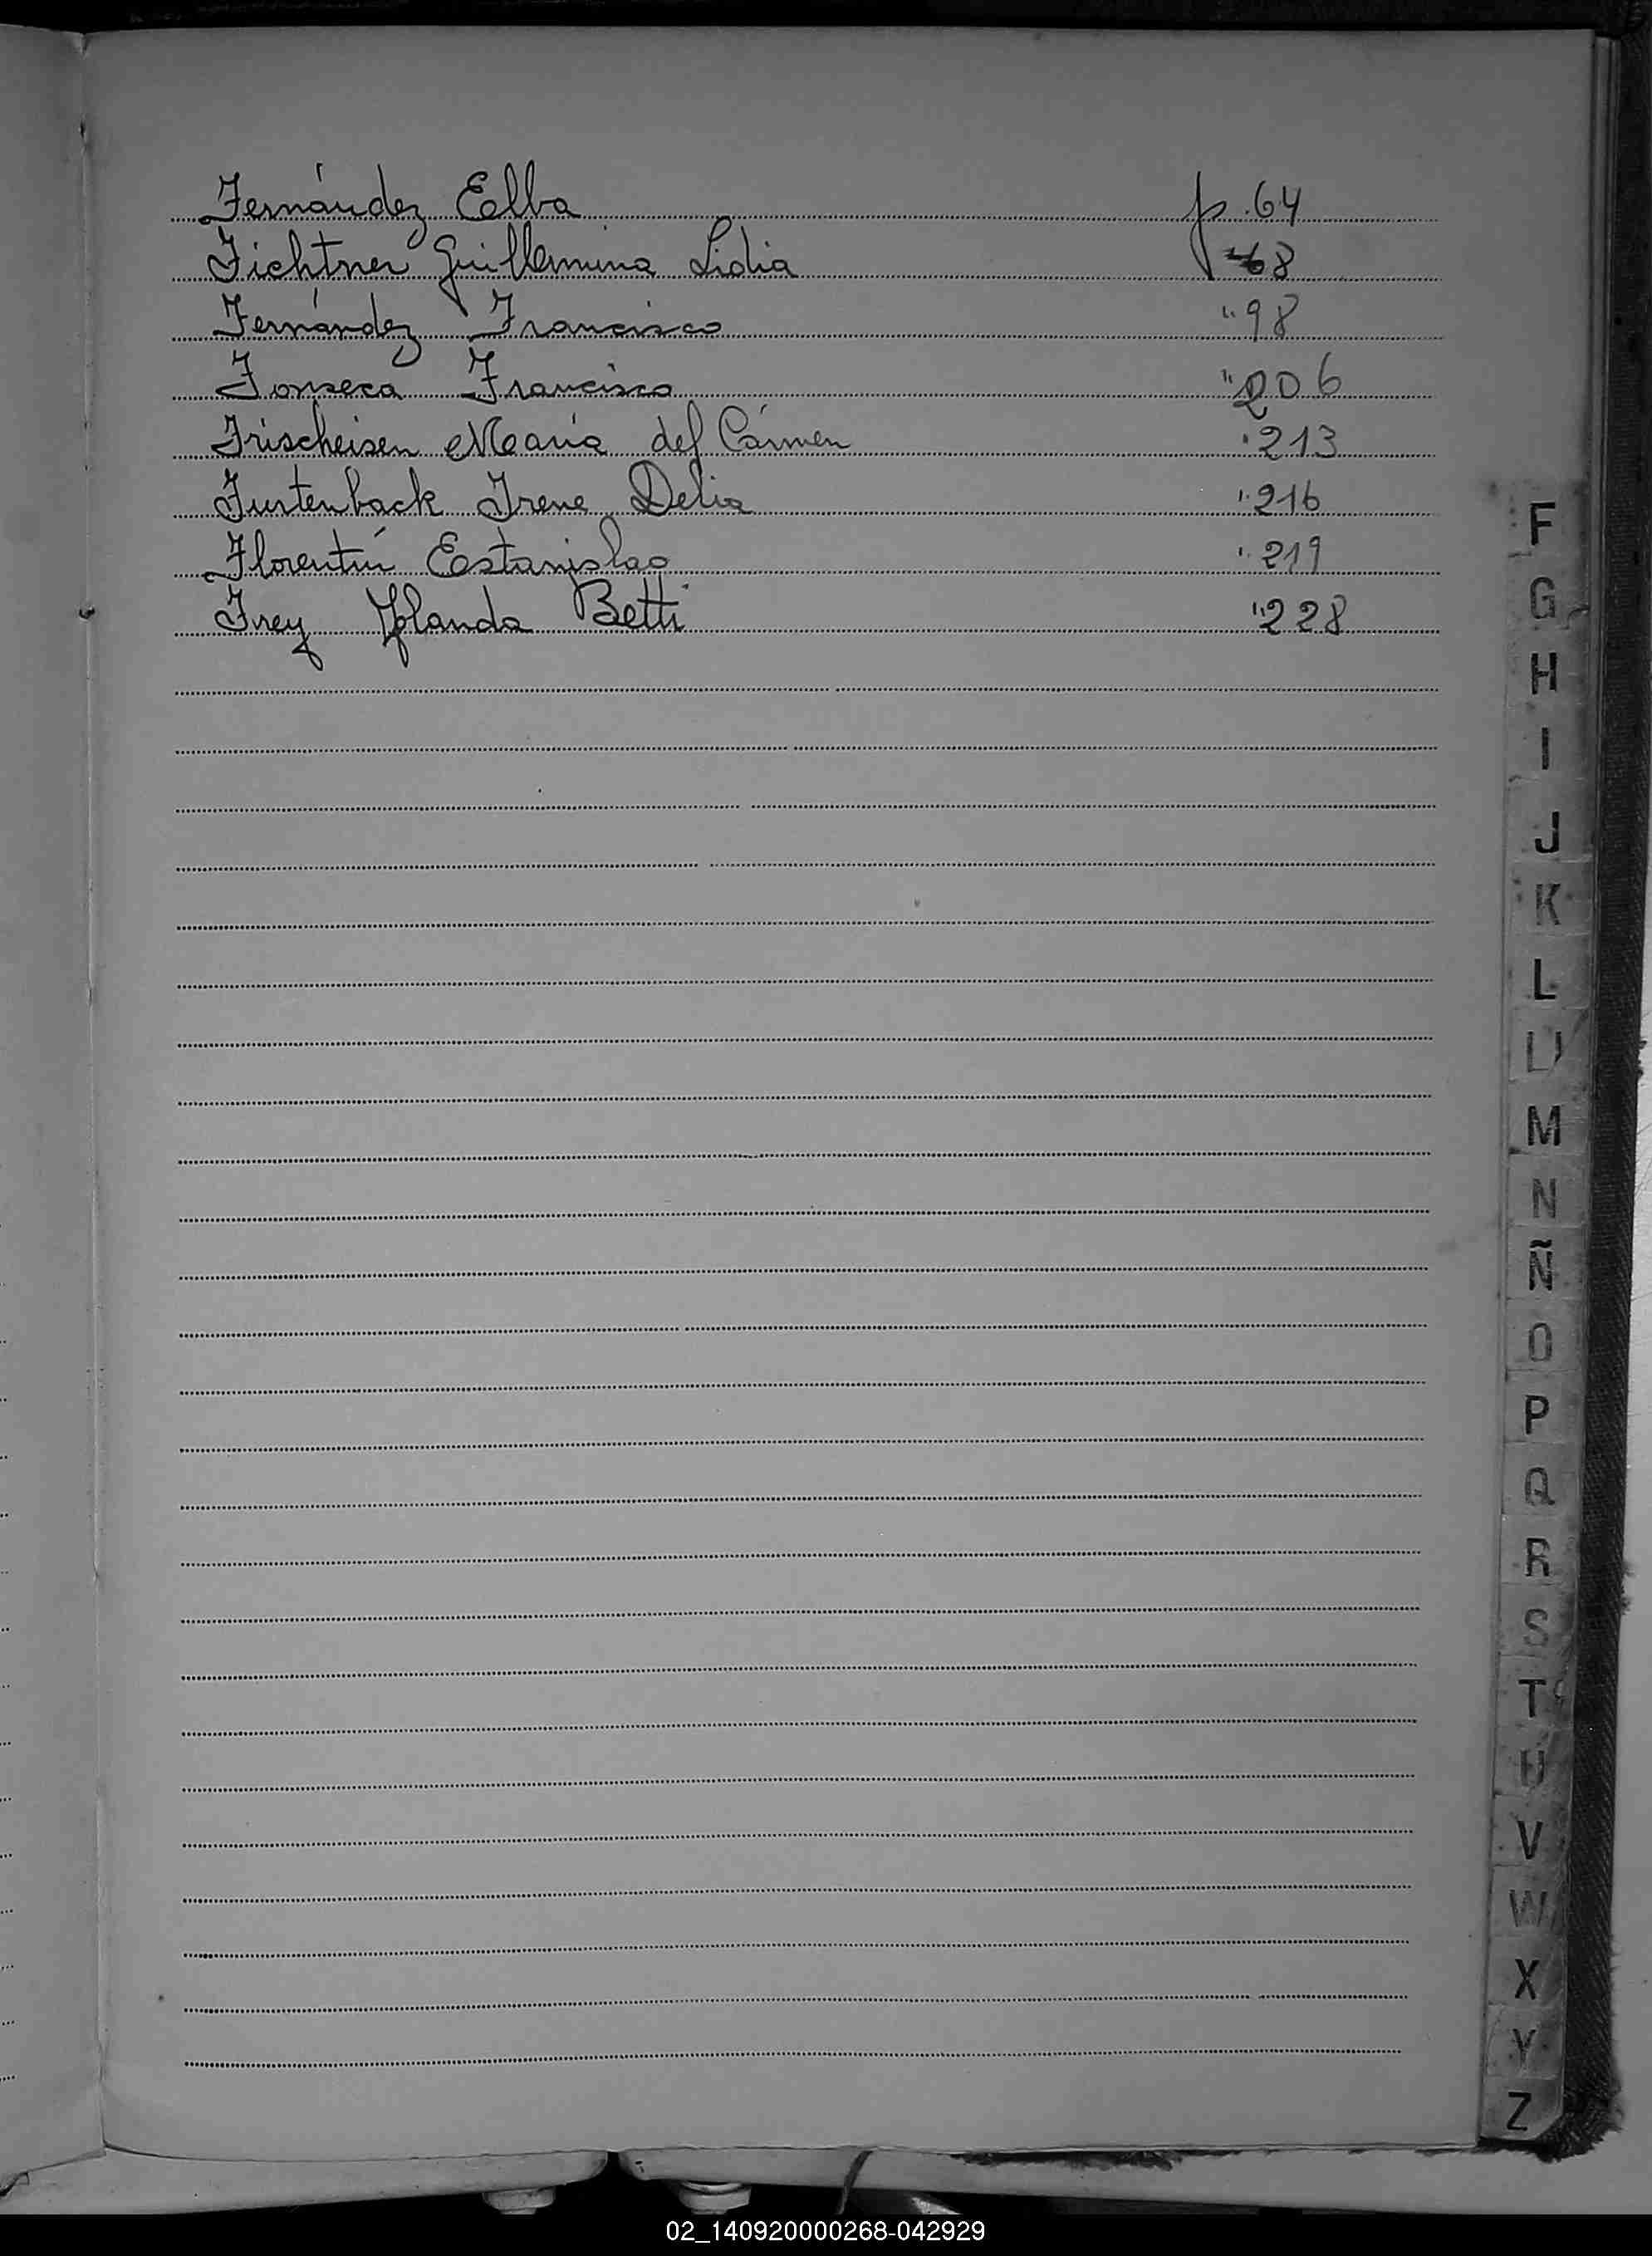 Fernández Elba p. 64
Fichtner Guillermina Lidia 68
Fernández Francisco " 98
Fonseca Francisco " 206
Frischeisen María del Cármen " 213
Furtenback Irene Delia " 216
Florentín Estanislao " 219
Frey Yolanda Betti " 228
F
G
H
I
J
K
L
M
N
Ñ
O
P
Q
R
S
T
U
V
W
X
Y
Z
02_140920000268-042929